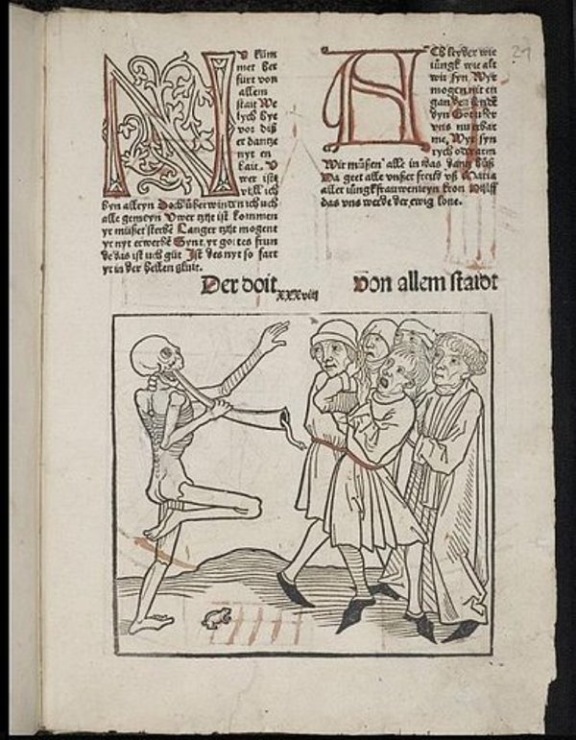 N V kum
met her
fürt von
allem
stait We
lych hye
vor diß
er dantze
nyt en
hait. V
wer iste
vyll ich
hyn alleyn Doch überwindt ich uch
alle gemeyn Vwer tzyt ist kommen
yr müßet sterbē Langer tzyt mogent
yr nyt erwerbē Synt yr gottes frun
de das ist uch güt Ist des nyt so fart
yr in der hellen gluit.
ACh leyder wie
iüngk wie alt
wir syn Wyr
mogen nit en
gan den
dyn Got
vns nu erbar
me, Wyr syn
rych oder arm
Wir müßen alle in das dantz
Da geet alle vnßer freüd vß Maria
aller iüngkfrauwen eyn kron Hilff
das vns werde der ewig lone.
Der doit von allem staidt
xxxviij
21